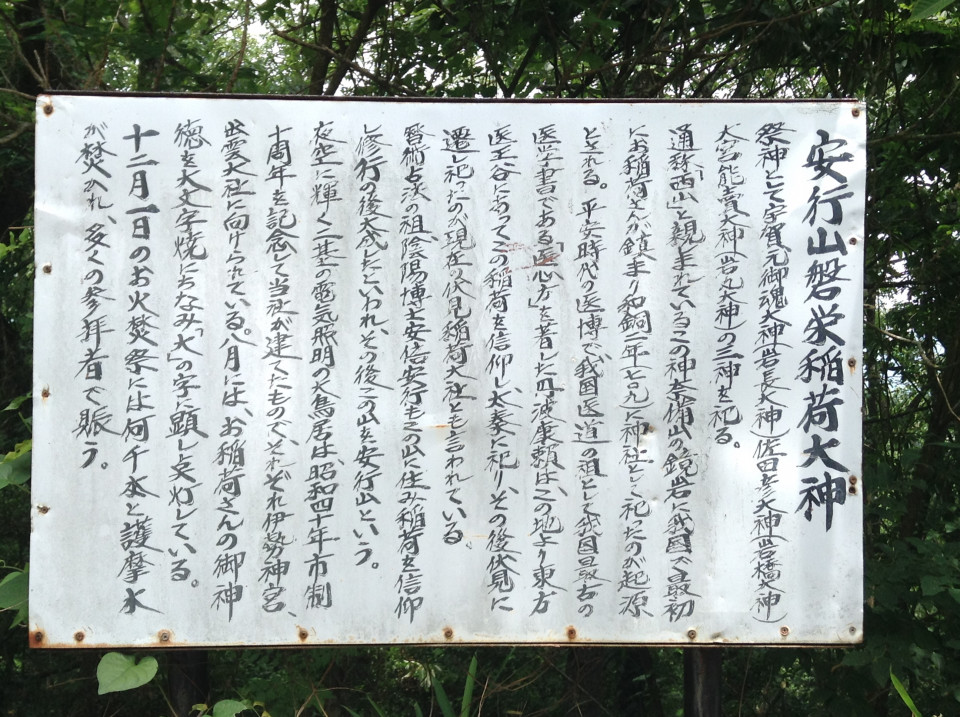 安行山磐栄稲荷大神
祭神として宇賀元御魂大神(岩長大神)佐田彦大神(岩橋大神)
大宮能賣大神(岩丸大神)の三神を祀る。
通称「西山」と親しまれているこの神奈備山の鏡岩に我国で最初
にお稲荷さんが鎮まり和銅二年と云元に神社として祀たのが起源
とされる。平安時代の医博で我国医道の祖として我国最古の
医学書である「医心方」を著した丹波康頼は、この地より東方
医王谷にあってこの稲荷を信仰し、太秦に祀り、その後伏見に
遷し祀ったのが現在の伏見稲荷大社とも言われている。
暦術占法の祖陰陽博士安倍安行もこの山に住み稲荷を信仰
し修行の後大成したといわれ、その後この山を安行山という。
夜空に輝く二基の電気照明の大鳥居は、昭和四十年市制
十周年を記念して当社が建てたもので、それぞれ伊勢神宮、
出雲大社に向けられている。八月には、お稲荷さんの御神
徳を大文字焼にちなみ「大」の字顕し点灯している。
十二月一日のお火焚祭には何千本と護摩木
が焚かれ、多くの参拝者で賑う。